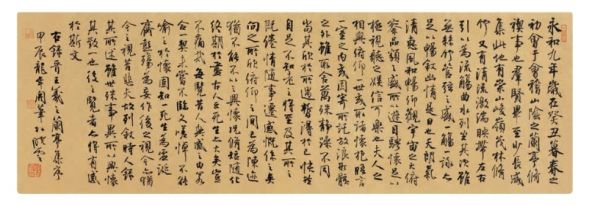 永和九年歲在癸丑暮春之
初會于會稽山陰之蘭亭脩
禊事也群賢畢至少長咸
集此地有崇山峻嶺茂林脩
竹又有清流激湍映帶左右
引以為流觴曲水列坐其次雖
無絲竹管弦之盛一觴一詠亦
足以暢敘幽情是日也天朗氣
清惠風和暢仰觀宇宙之大俯
察品類之盛所以遊目騁懷足以
極視聽之娛信可樂也夫人之
相與俯仰一世或取諸懷抱晤言
一室之內或因寄所託放浪形骸
之外雖取舍萬殊靜躁不同
當其欣於所遇暫得於己快然
自足不知老之將至及其所之
既倦情隨事遷感慨係之矣
向之所欣俯仰之間已為陳迹
猶不能不以之興懷況脩短隨化
終期於盡古人云死生亦大矣豈
不痛哉每覽昔人興感之由若
合一契未嘗不臨文嗟悼不能
喻之於懷固知一死生為虛誕
齊彭殤為妄作後之視今亦猶
今之視昔悲夫故列敘時人錄
其所述雖世殊事異所以興懷
其致一也後之覽者亦將有感
於斯文
右錄晉王羲之蘭亭集序
甲辰龍年